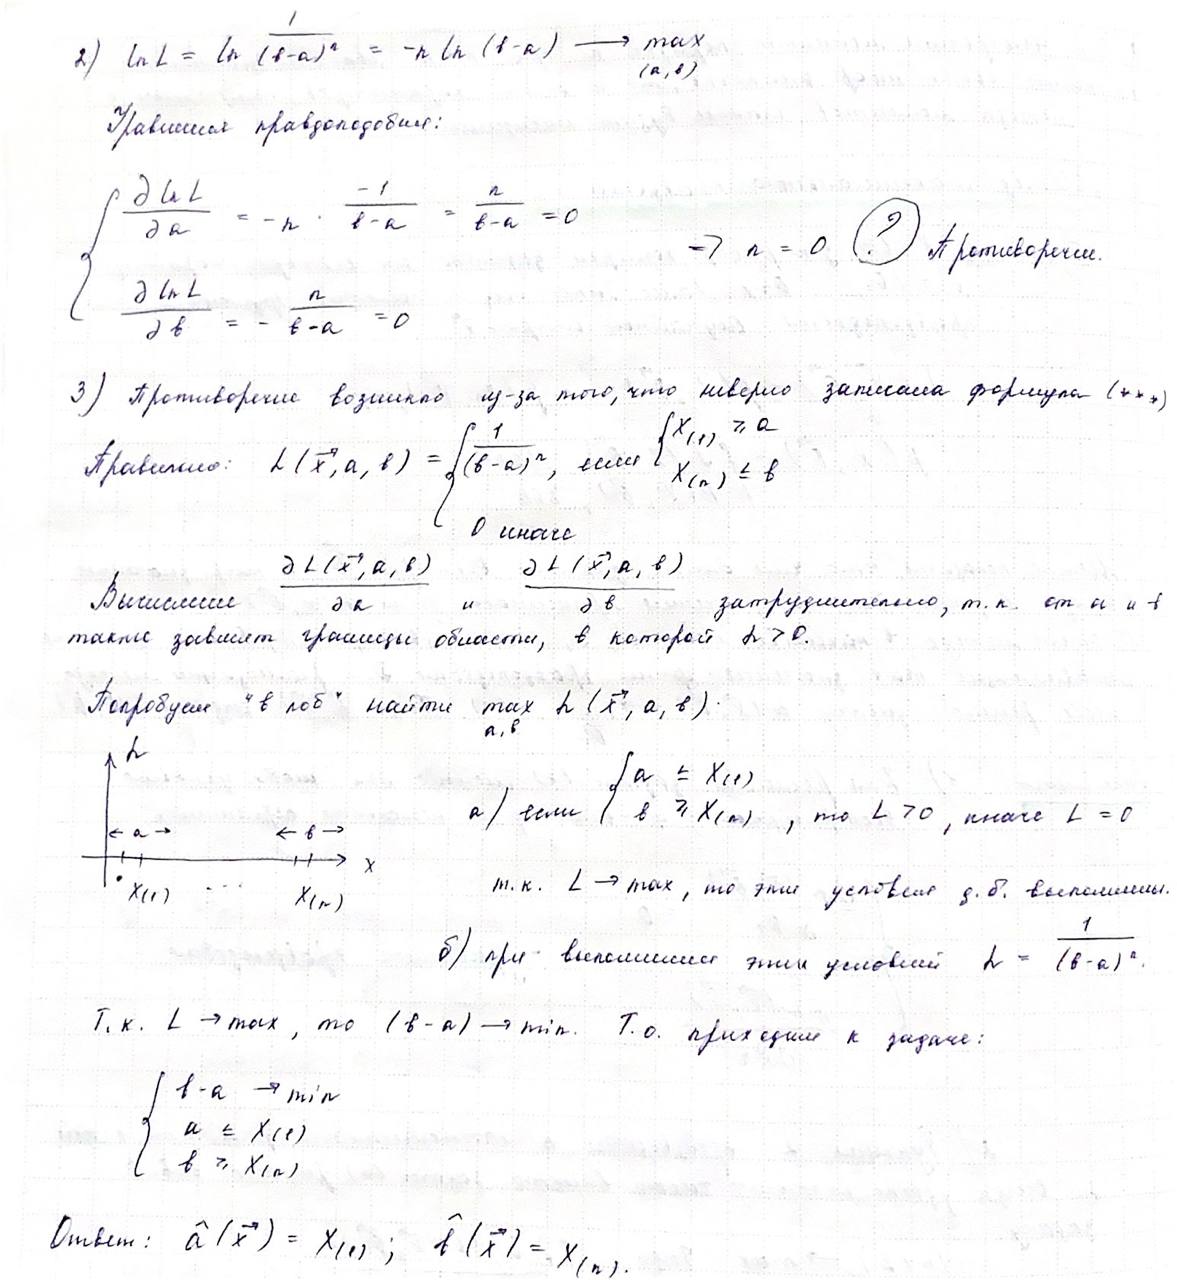 2) ln L = ln 1/(b-a)^n = -n ln (b-a) → max (a, b)
Уравнения правдоподобия:
{ ∂ ln L/∂a = -n · -1/(b-a) = n/(b-a) = 0
∂ ln L/∂b = - n/(b-a) = 0
=> n = 0 (?) Противоречие.
3) Противоречие возникло из-за того, что неверно записана формула (***)
Правильно: L(x⃗, a, b) = { 1/(b-a)^n, если { X(1) ≥ a
X(n) ≤ b
0 иначе
Вычисление ∂L(x⃗, a, b)/∂a и ∂L(x⃗, a, b)/∂b затруднительно, т.к. от a и b
также зависят границы области, в которой L>0.
Попробуем "в лоб" найти max a,b L(x⃗, a, b).
L
← a →
← b →
x
X(1) ... X(n)
а) если { a ≤ X(1)
b ≥ X(n), то L>0, иначе L = 0
т.к. L → max, то эти условия д.б. выполнены.
б) при выполнении этих условий L = 1/(b-a)^n.
Т.к. L → max, то (b-a) → min. Т.о. приходим к задаче:
{ b-a → min
a ≤ X(1)
b ≥ X(n)
Ответ: â(x⃗) = X(1); b̂(x⃗) = X(n).